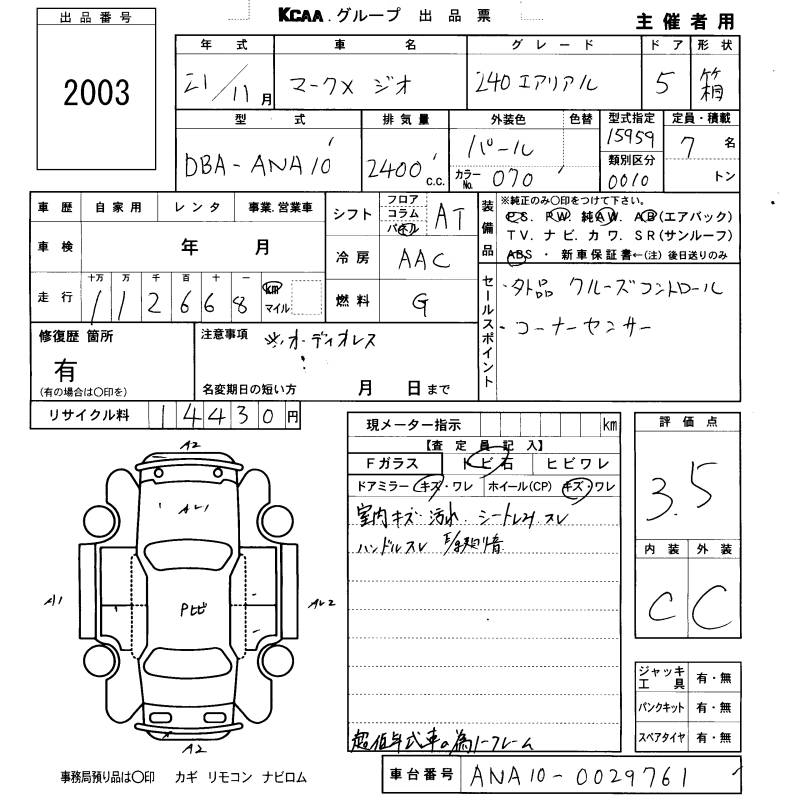 出品番号
2003
KCAA.グループ 出品票
主催者用
年式 車名 グレード ドア 形状
21/11月 マークX ジオ 240 エアリアル 5 箱
型式 排気量 外装色 色替 型式指定 定員・積載
DBA-ANA10 2400 c.c. パール 15959 7名
カラーNo. 070 類別区分 0010 トン
車歴 自家用 レンタ 事業.営業車
車検 年 月
走行 十万 万 千 百 十 一
112668 km マイル
シフト フロア コラム パネル AT
冷房 AAC
燃料 G
装備品
※純正のみ〇印をつけて下さい。
P.S. P.W. 純A.W. A.B(エアバック)
T.V. ナビ. カワ. S.R(サンルーフ)
ABS ・ 新車保証書←(注)後日送りのみ
セールスポイント
・外品 クルーズコントロール
・コーナーセンサー
修復歴 箇所
有
(有の場合は〇印を)
注意事項 ※オーディオレス
名変期日の短い方 月 日まで
リサイクル料 14430円
現メーター指示 km
【査定員記入】
Fガラス トビ石 ヒビワレ
ドアミラー キズ・ワレ ホイール(CP) キズ・ワレ
室内キズ 汚れ. シート スレ
ハンドルスレ
評価点
3.5
内装 外装
C C
A2
A1
Pトビ
A1
A2
ジャッキ工具 有・無
パンクキット 有・無
スペアタイヤ 有・無
超低年式車の為ノークレーム
事務局預り品は〇印 カギ リモコン ナビロム
車台番号 ANA10-0029761